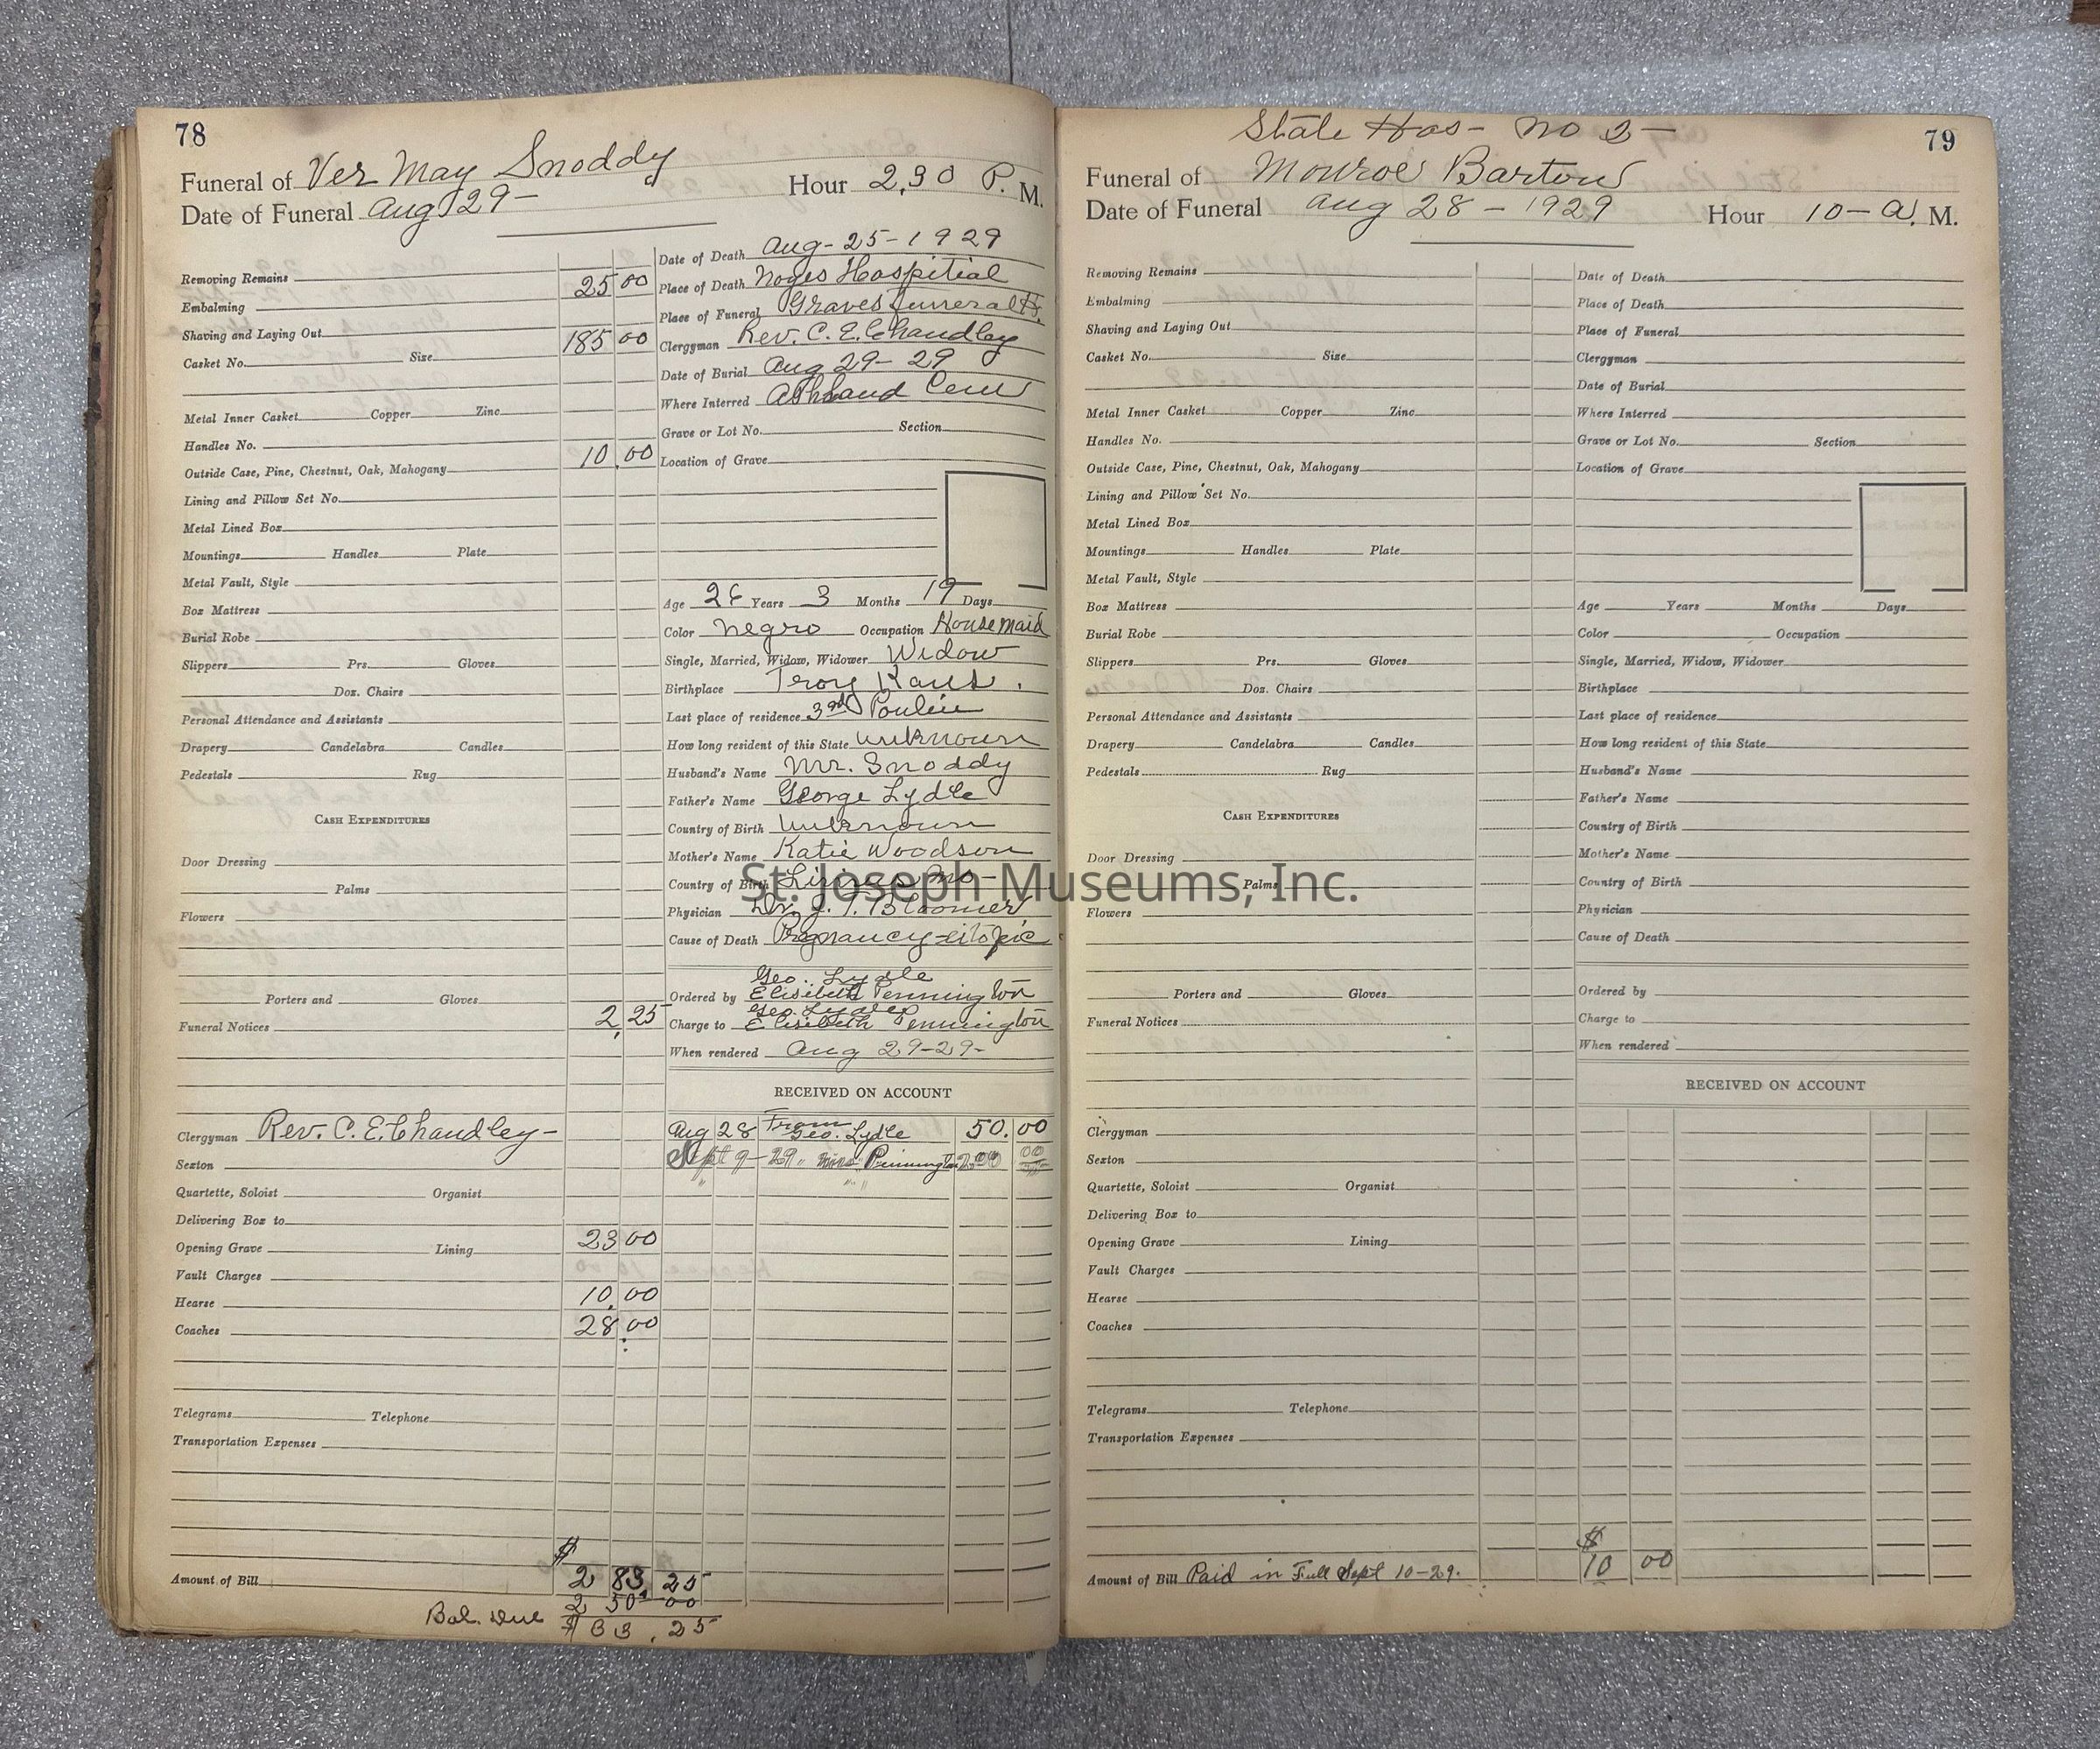 78
Funeral of Ver May Snoddy Hour 2,30 P. M.
Date of Funeral Aug 29-
Removing Remains
Embalming 25 00
Shaving and Laying Out
Casket No. Size 185 00
Metal Inner Casket Copper Zinc
Handles No.
Outside Case, Pine, Chestnut, Oak, Mahogany 10.00
Lining and Pillow Set No.
Metal Lined Box
Mountings Handles Plate
Metal Vault, Style
Box Mattress
Burial Robe
Slippers Prs. Gloves
Doz. Chairs
Personal Attendance and Assistants
Drapery Candelabra Candles
Pedestals Rug
CASH EXPENDITURES
Door Dressing
Palms
Flowers
Porters and Gloves
Funeral Notices 2,25
Clergyman Rev. C. E. Chandley-
Sexton
Quartette, Soloist Organist
Delivering Box to
Opening Grave Lining 23 00
Vault Charges
Hearse 10.00
Coaches 28.00
Telegrams Telephone
Transportation Expenses
$
Amount of Bill 2 83 25
2 50 00
Bal. Due $ 33.25
Date of Death Aug-25-1929
Place of Death Noyes Hospitial
Place of Funeral Graves Funeral H.
Clergyman Rev. C. E. Chandley
Date of Burial Aug 29-29
Where Interred Ashland Cem
Grave or Lot No. Section
Location of Grave
Age 26 Years 3 Months 19 Days
Color Negro Occupation House maid
Single, Married, Widow, Widower Widow
Birthplace Troy Kans.
Last place of residence 3rd Poulin
How long resident of this State unknown
Husband's Name Mr. Snoddy
Father's Name George Lydle
Country of Birth Unknown
Mother's Name Katie Woodson
Country of Birth Mo-
Physician Dr. J. T. Bloomer
Cause of Death Pregnancy-
Geo. Lydle
Ordered by Elisebeth Pennington
Geo. Lydle
Charge to Elisebeth Pennington
When rendered Aug 29-29-
RECEIVED ON ACCOUNT
Aug 28 From Geo. Lydle 50.00
Sept 9-29 " Miss Pennington 200 00
" "
State Hos- No 2-
79
Funeral of Monroe Barton
Date of Funeral Aug 28-1929 Hour 10-A. M.
Removing Remains
Embalming
Shaving and Laying Out
Casket No. Size
Metal Inner Casket Copper Zinc
Handles No.
Outside Case, Pine, Chestnut, Oak, Mahogany
Lining and Pillow Set No.
Metal Lined Box
Mountings Handles Plate
Metal Vault, Style
Box Mattress
Burial Robe
Slippers Prs. Gloves
Doz. Chairs
Personal Attendance and Assistants
Drapery Candelabra Candles
Pedestals Rug
CASH EXPENDITURES
Door Dressing
Palms
Flowers
Porters and Gloves
Funeral Notices
Clergyman
Sexton
Quartette, Soloist Organist
Delivering Box to
Opening Grave Lining
Vault Charges
Hearse
Coaches
Telegrams Telephone
Transportation Expenses
$
Amount of Bill Paid in Full Sept 10-29. 10 00
Date of Death
Place of Death
Place of Funeral
Clergyman
Date of Burial
Where Interred
Grave or Lot No. Section
Location of Grave
Age Years Months Days
Color Occupation
Single, Married, Widow, Widower
Birthplace
Last place of residence
How long resident of this State
Husband's Name
Father's Name
Country of Birth
Mother's Name
Country of Birth
Physician
Cause of Death
Ordered by
Charge to
When rendered
RECEIVED ON ACCOUNT
St. Joseph Museums, Inc.